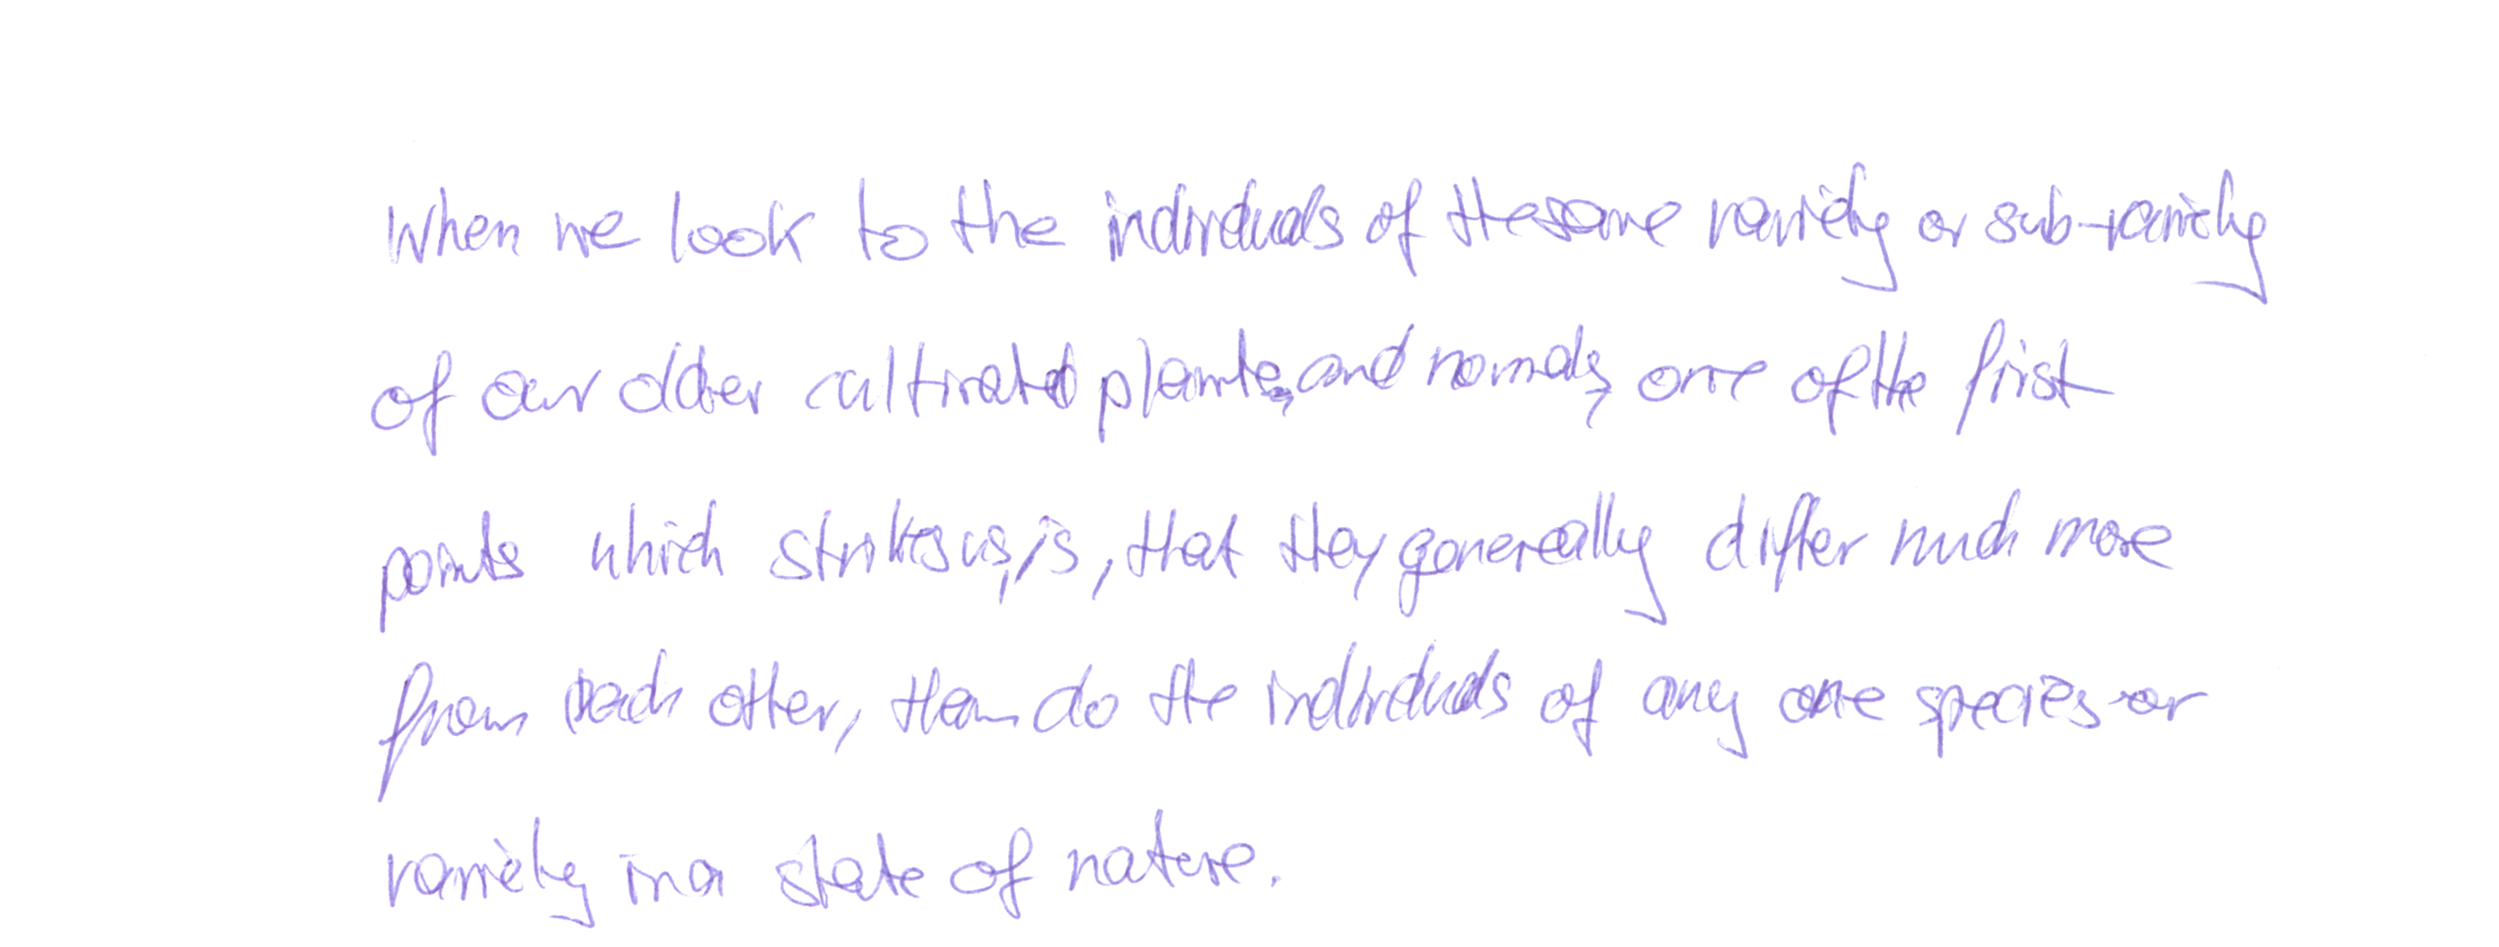 When we look to the individuals of the same variety or sub-variety
of our older cultivated plants and nomals, one of the first
points which strikes us, is, that they generally differ much more
from each other, than do the individuals of any one species or
variety in a state of nature.